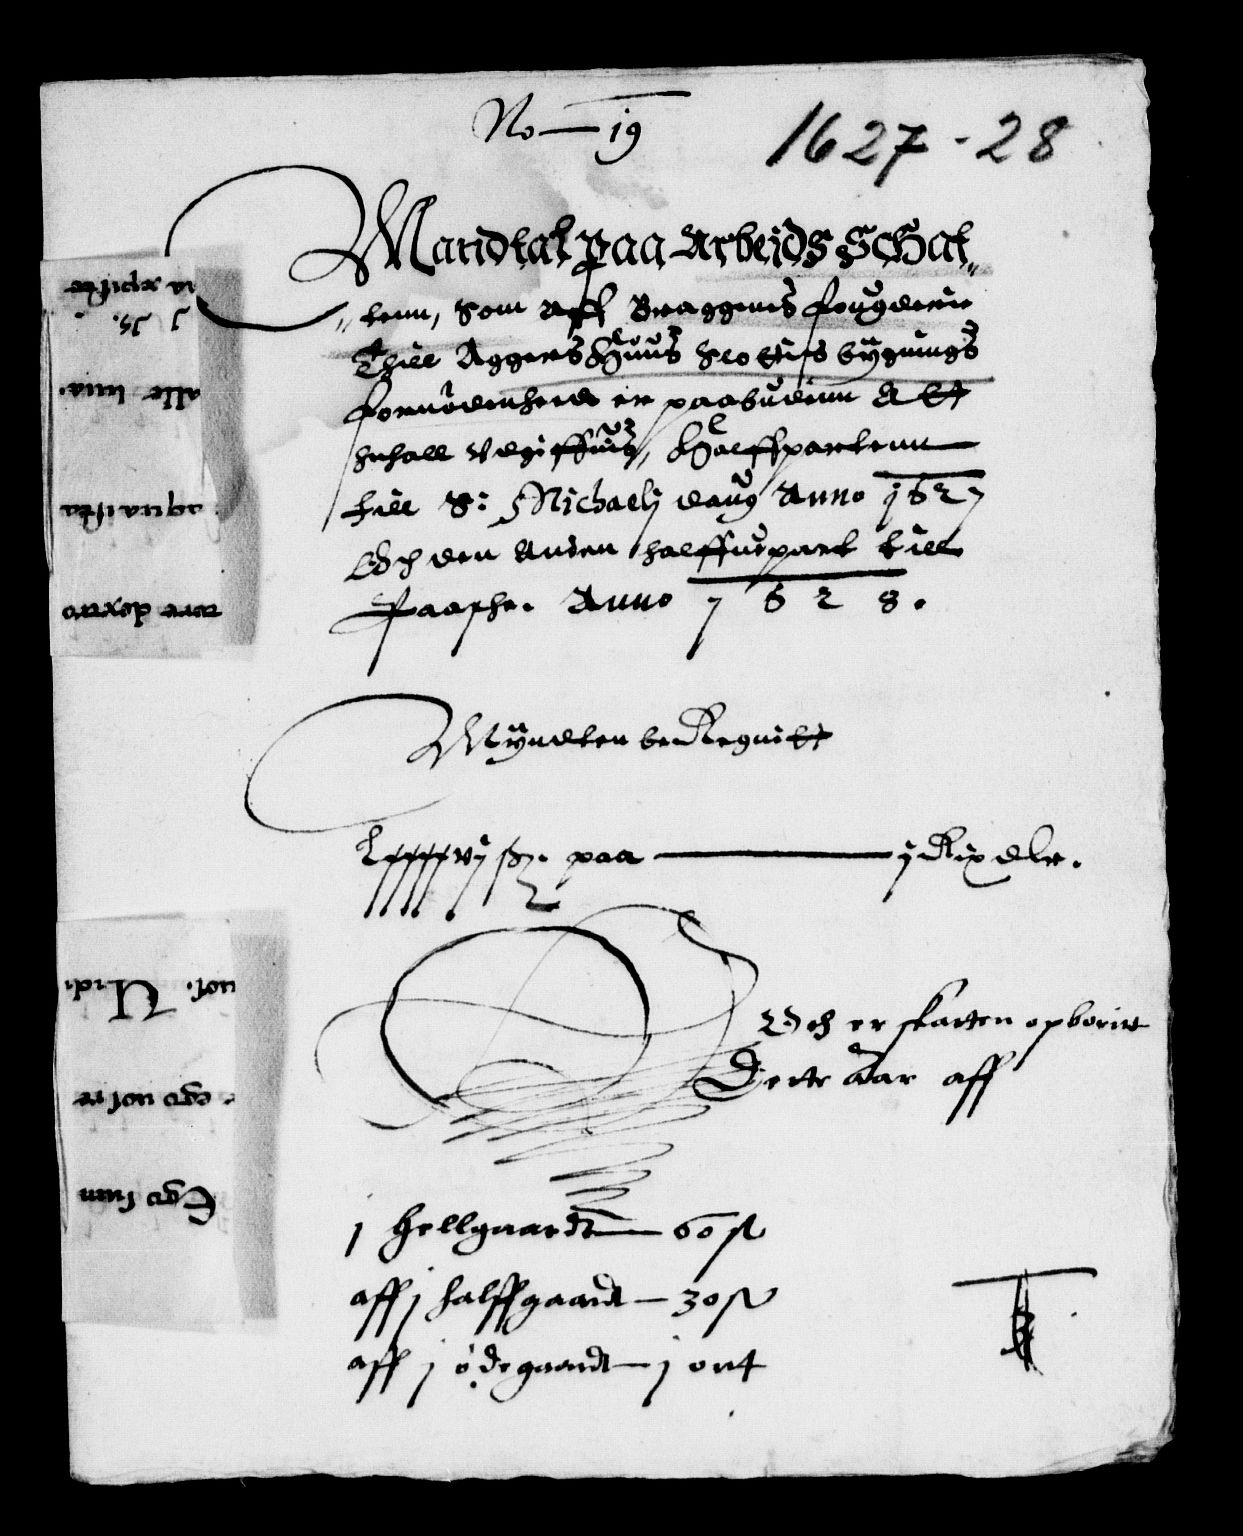 No 19
1627-28
Mandtal paa Arbejds Schat„
„tenn, som aff Braggenes fougderie
Thill Aggershuus Slottis bÿgnings
fornødenheed er paabudenn Att
 udgiffuis, Halffpartenn
till S: Michaelj daug Anno 1627
Och den anden halffuepart till
Paasche. Anno 1628.
Mÿndten beregnitt
Lxxxxvj ß. paa — j Rixdlr.
Och er skatten opborit
Dette aar aff
j hellgaardt — 60 ß
aff j halffgaardt — 30 ß
aff j ødegaardt — j ort